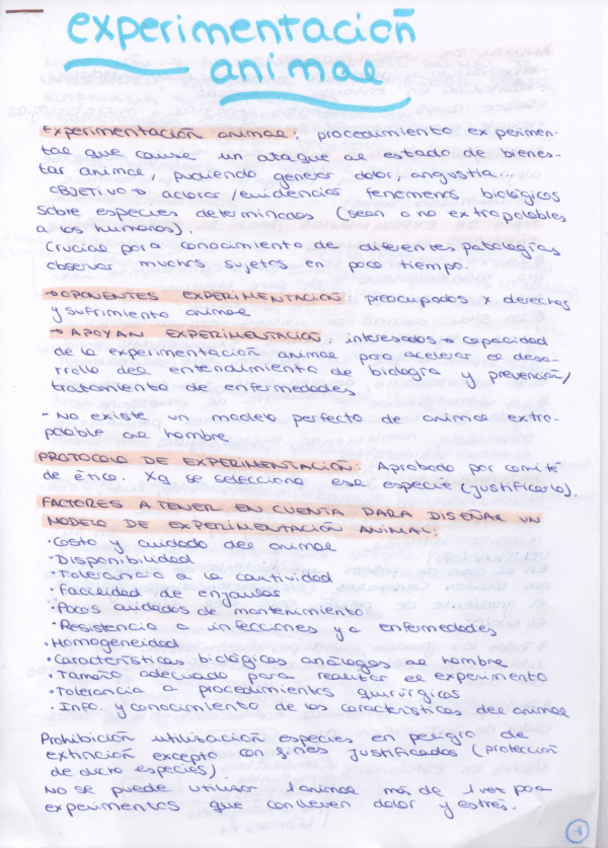 experimentación
animal
Experimentación animal: procedimiento experimen-
tal que cause un ataque al estado de bienes-
tar animal, pudiendo generar dolor, angustia...
OBJETIVO → aclarar/evidenciar fenómenos biológicos
sobre especies determinadas (sean o no extrapolables
a los humanos).
Crucial para conocimiento de diferentes patologías
observar muchos sujetos en poco tiempo.
→ OPONENTES EXPERIMENTACIÓN: preocupados x derechos
y sufrimiento animal
→ APOYAN EXPERIMENTACIÓN: interesados → capacidad
de la experimentación animal para acelerar el desa-
rrollo del entendimiento de biología y prevención/
tratamiento de enfermedades
- No existe un modelo perfecto de animal extra-
polable al hombre
PROTOCOLO DE EXPERIMENTACIÓN: Aprobado por comité
de ética. Xq se selecciona esa especie (justificarlo).
FACTORES A TENER EN CUENTA PARA DISEÑAR UN
MODELO DE EXPERIMENTACIÓN ANIMAL:
· Costo y cuidado del animal
· Disponibilidad
· Tolerancia a la cautividad
· Facilidad de enjaular
· Pocos cuidados de mantenimiento
· Resistencia a infecciones y a enfermedades
· Homogeneidad
· Características biológicas análogas al hombre
· Tamaño adecuado para realizar el experimento
· Tolerancia a procedimientos quirúrgicos
· Info. y conocimiento de las características del animal
Prohibición utilización especies en peligro de
extinción excepto con fines justificados (protección
de dicha especies).
No se puede utilizar 1 animal más de 1 vez para
experimentos que conlleven dolor y estrés.
1